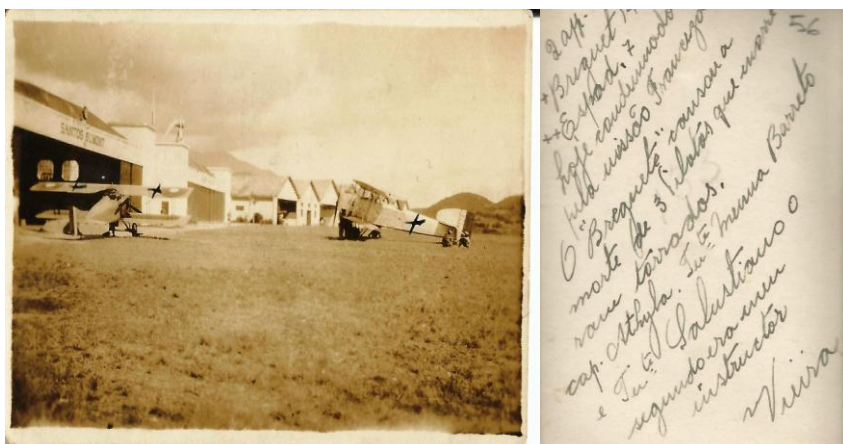 SANTOS DUMONT
56
2 app.
* Breguet
** Espad. 7
hoje condennado
pela missão Franceza
O "Breguete" causou a
morte de 3 pilotos que morre
ram torrados.
cap. Athyla. Tnte Menna Barreto
e Tnte Salustiano o
segundo era meu
instructor
Vieira